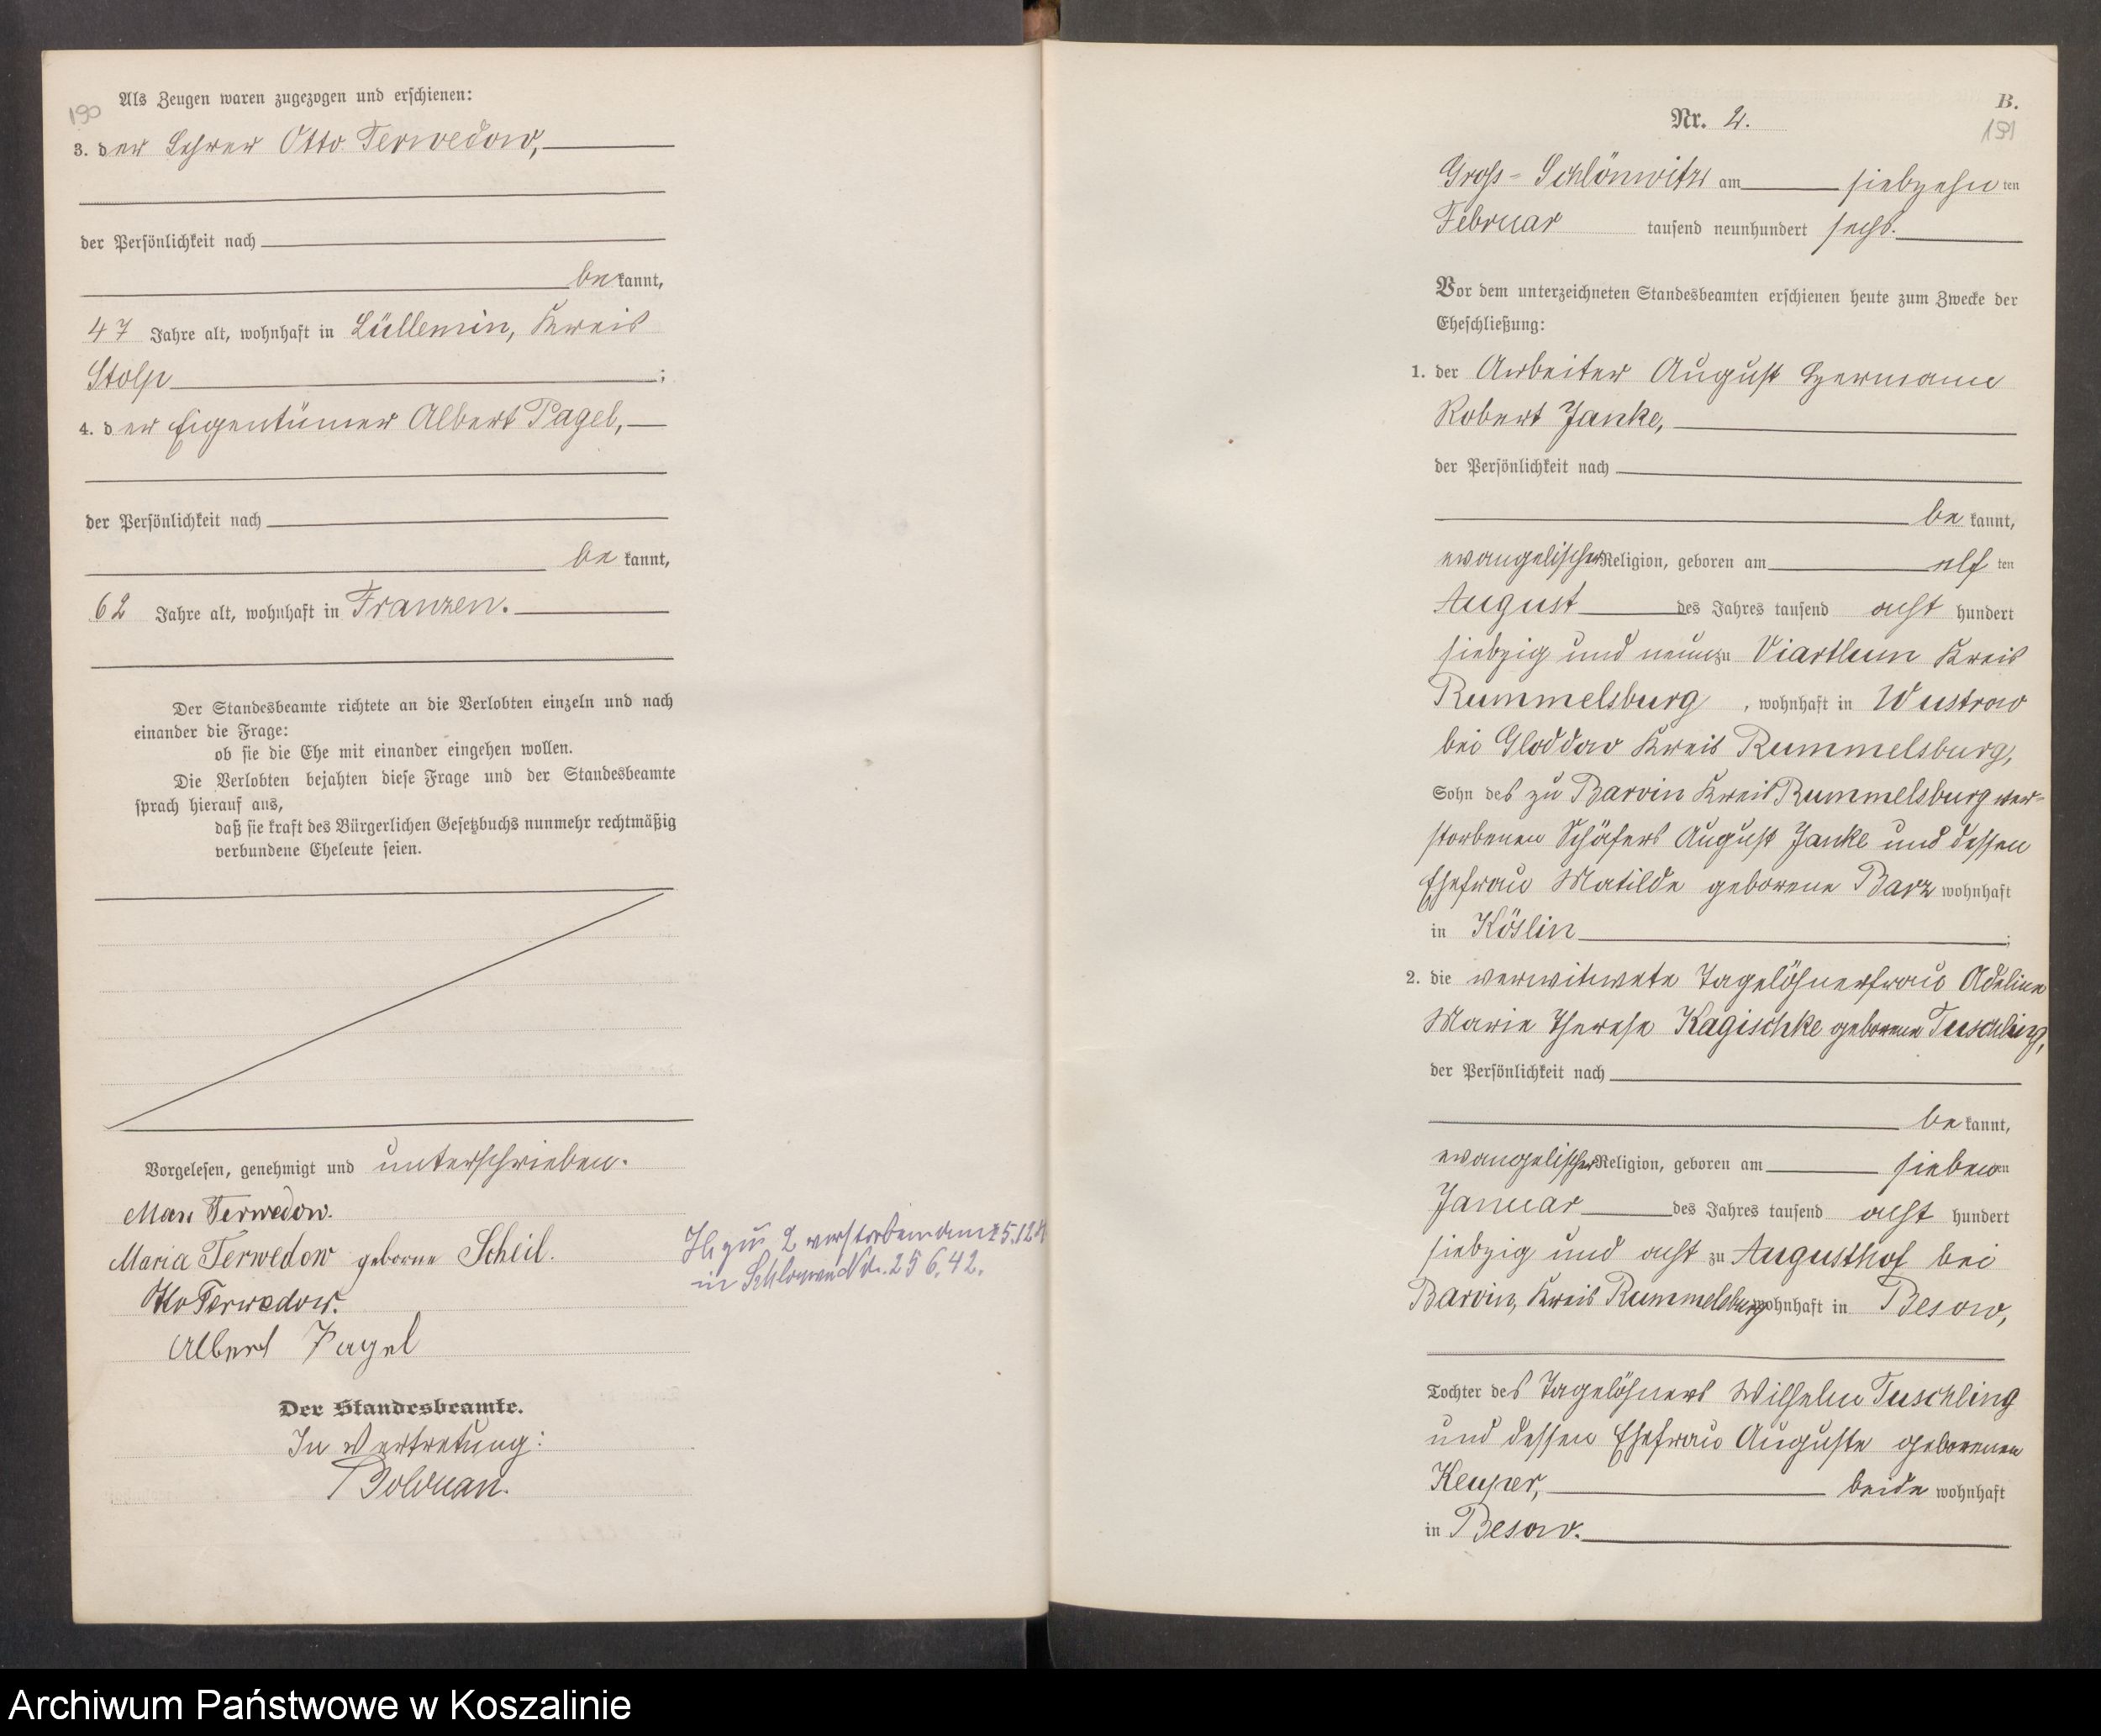 190
Als Zeugen waren zugezogen und erschienen:
3. der Lehrer Otto Terwedow,
der Persönlichkeit nach
bekannt,
47 Jahre alt, wohnhaft in Lüllemin, Kreis
Stolp ;
4. der Eigentümer Albert Pagel,
der Persönlichkeit nach
be kannt,
62 Jahre alt, wohnhaft in Franzen.
Der Standesbeamte richtete an die Verlobten einzeln und nach
einander die Frage:
ob sie die Ehe mit einander eingehen wollen.
Die Verlobten bejahten diese Frage und der Standesbeamte
sprach hierauf aus,
daß sie kraft des Bürgerlichen Gesetzbuchs nunmehr rechtmäßig
verbundene Eheleute seien.
Vorgelesen, genehmigt und unterschrieben.
Max Terwedow.
Maria Terwedow geborne Scheil.
Otto Terwedow.
Albert Pagel
Der Standesbeamte.
In Vertretung:
Bolduan.
zu 2 verstorben am 25.12.
in Nr. 256.42.
B.
191
Nr. 2.
Gross-Schlönwitz am siebzehn ten
Februar tausend neunhundert sechs.
Vor dem unterzeichneten Standesbeamten erschienen heute zum Zwecke der
Eheschließung:
1. der Arbeiter August Hermann
Robert Janke,
der Persönlichkeit nach
be kannt,
evangelischer Religion, geboren am elf ten
August des Jahres tausend acht hundert
siebzig und neun zu Viartlum Kreis
Rummelsburg, wohnhaft in Wustrow
bei Gloddow Kreis Rummelsburg,
Sohn des zu Barvin Kreis Rummelsburg ver-
storbenen Schäfers August Janke und dessen
Ehefrau Matilde geborene Barz wohnhaft
in Köslin ;
2. die verwitwete Tagelöhnerfrau Adeline
Marie Therese Kagischke geborene Tuschling,
der Persönlichkeit nach
be kannt,
evangelischer Religion, geboren am siebenten
Januar des Jahres tausend acht hundert
siebzig und acht zu Augusthof bei
Barvin, Kreis Rummelsburg wohnhaft in Besow,
Tochter des Tagelöhners Wilhelm Tuschling
und dessen Ehefrau Auguste geborenen
Keuper, beide wohnhaft
in Besow.
Archiwum Państwowe w Koszalinie